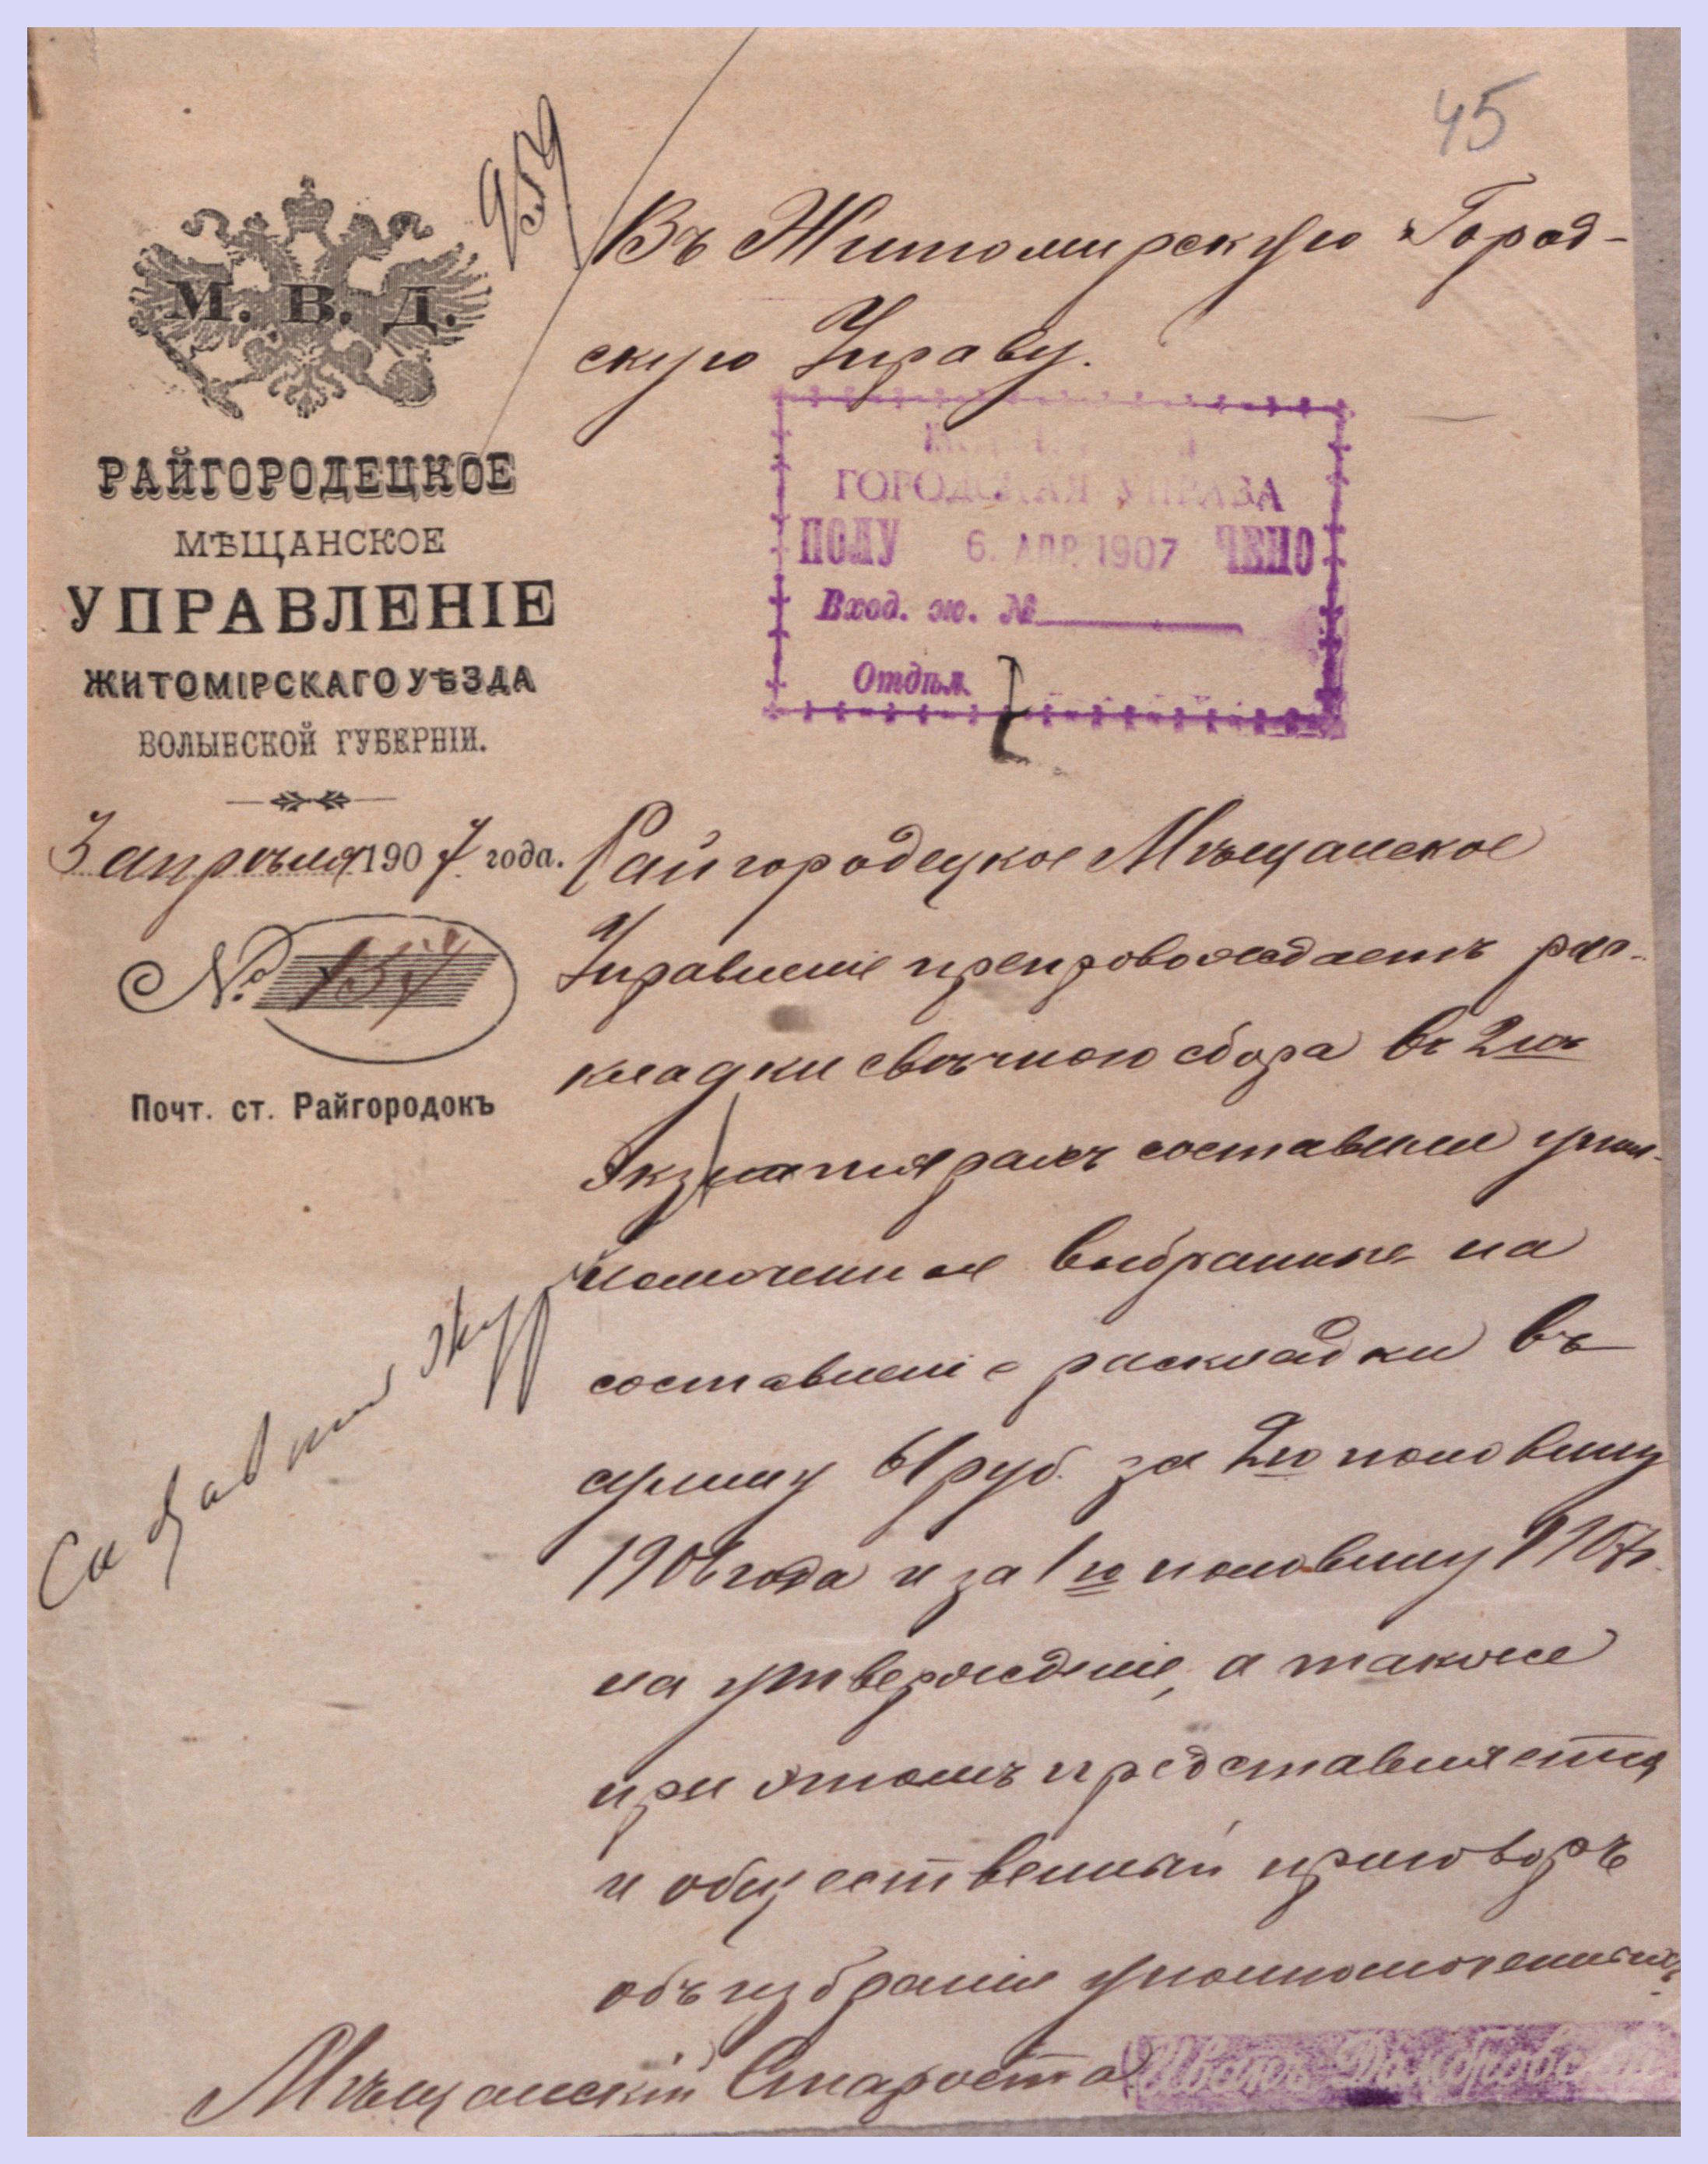 45
959
М. В. Д.
РАЙГОРОДЕЦКОЕ
МѢЩАНСКОЕ
УПРАВЛЕНІЕ
ЖИТОМІРСКАГО УѢЗДА
ВОЛЫНСКОЙ ГУБЕРНІИ.
3 апрѣля 1907 года.
№ 154
Почт. ст. Райгородокъ
Въ Житомирскую Город-
скую Управу.
ГОРОДСКАЯ УПРАВА
ПОЛУ 6. АПР. 1907 ЧЕНО
Вход. ж. №
Отдѣл.
Райгородецкое Мѣщанское
Управленіе препровождаетъ рас-
кладки свѣчного сбора въ 2хъ
экземплярахъ составлен упол-
номоченные выбранные на
составленіе раскладки въ
сумму 61 руб. за 2ю половину
1906 года и за 1ю половину 1907г.
на утвержденіе, а также
при этомъ представляется
и общественный приговоръ
объ избраніи уполномоченныхъ.
Мѣщанскій Староста
Иванъ